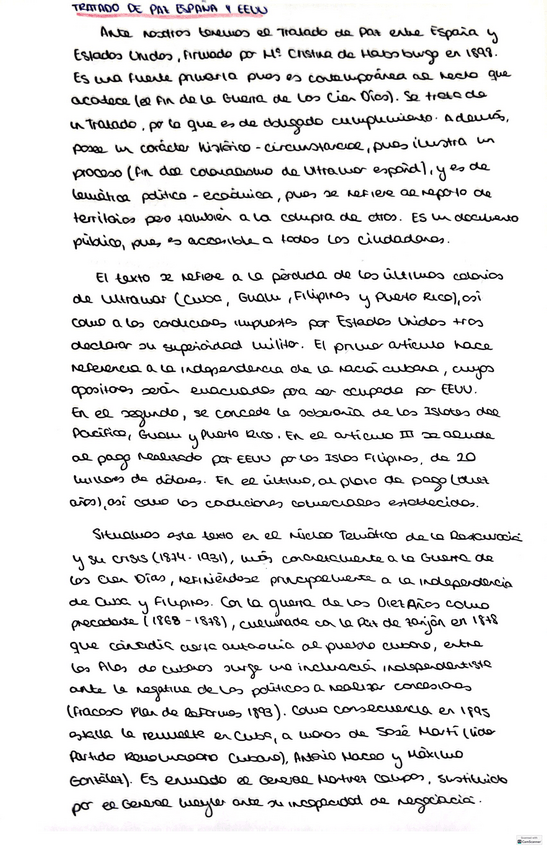 TRATADO DE PAZ ESPAÑA Y EEUU
Ante nosotros tenemos el Tratado de Paz entre España y
Estados Unidos, firmado por Mª Cristina de Habsburgo en 1898.
Es una fuente primaria pues es contemporánea al hecho que
acontece (el fin de la Guerra de los Cien Días). Se trata de
un Tratado, por lo que es de obligado cumplimiento. Además,
posee un carácter histórico - circunstancial, pues ilustra un
proceso (fin del colonialismo de Ultramar español), y es de
temática político - económica, pues se refiere al reparto de
territorios pero también a la compra de otros. Es un documento
público, pues es accesible a todos los ciudadanos.
El texto se refiere a la pérdida de los últimos colonias
de Ultramar (Cuba, Guam, Filipinas y Puerto Rico), así
como a las condiciones impuestas por Estados Unidos tras
declarar su superioridad militar. El primer artículo hace
referencia a la independencia de la nación cubana, cuyos
opositores serán evacuados para ser ocupada por EEUU.
En el segundo, se concede la soberanía de los Islotes del
Pacífico, Guam y Puerto Rico. En el artículo III se alude
al pago realizado por EEUU por las Islas Filipinas, de 20
millones de dólares. En el último, al plazo de pago (diez
años), así como las condiciones comerciales establecidas.
Situamos este texto en el Núcleo Temático de la Restauración
y su crisis (1874 - 1931), más concretamente a la Guerra de
los Cien Días, refiriéndose principalmente a la independencia
de Cuba y Filipinas. Con la guerra de los Diez Años como
precedente (1868 - 1878), culminada con la Paz de Zanjón en 1878
que concedía cierta autonomía al pueblo cubano, entre
las filas de cubanos surge una inclinación independentista
ante la negativa de los políticos a realizar concesiones
(fracaso Plan de Reformas 1893). Como consecuencia en 1895
estalla la revuelta en Cuba, a manos de José Martí (líder
Partido Revolucionario Cubano), Antonio Maceo y Máximo
González). Es enviado el General Martínez Campos, sustituido
por el General Weyler ante su incapacidad de negociación.
CamScanner